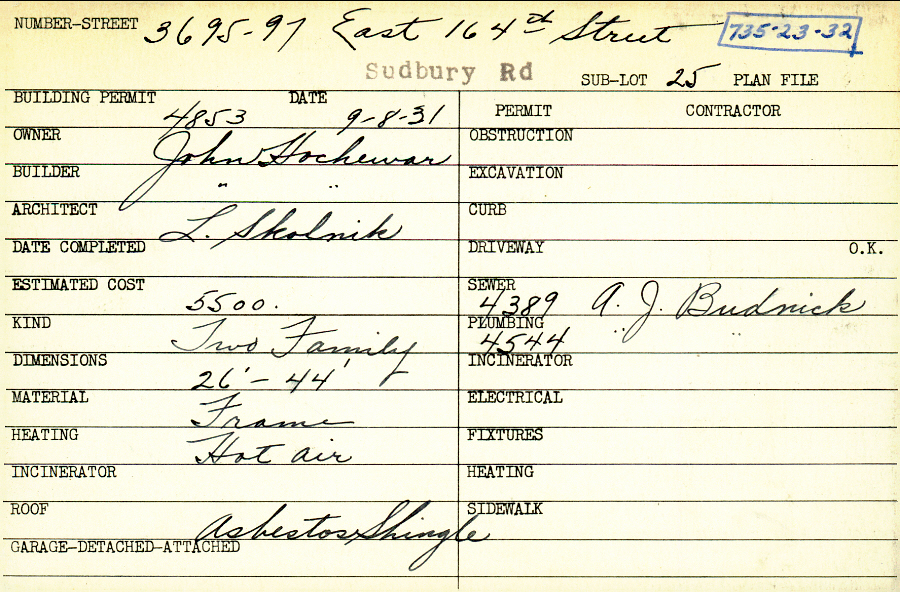 NUMBER-STREET 3695-97 East 164th Street 735-23-32
Sudbury Rd SUB-LOT 25 PLAN FILE
BUILDING PERMIT 4853 DATE 9-8-31 PERMIT CONTRACTOR
OWNER John Hochewar OBSTRUCTION
BUILDER " " EXCAVATION
ARCHITECT L. Skolnik CURB
DATE COMPLETED DRIVEWAY O.K.
ESTIMATED COST 5500. SEWER 4389 A. J. Budnick
KIND Two Family PLUMBING 4544 " "
DIMENSIONS 26' - 44' INCINERATOR
MATERIAL Frame ELECTRICAL
HEATING Hot air FIXTURES
INCINERATOR HEATING
ROOF Asbestos Shingle SIDEWALK
GARAGE-DETACHED-ATTACHED